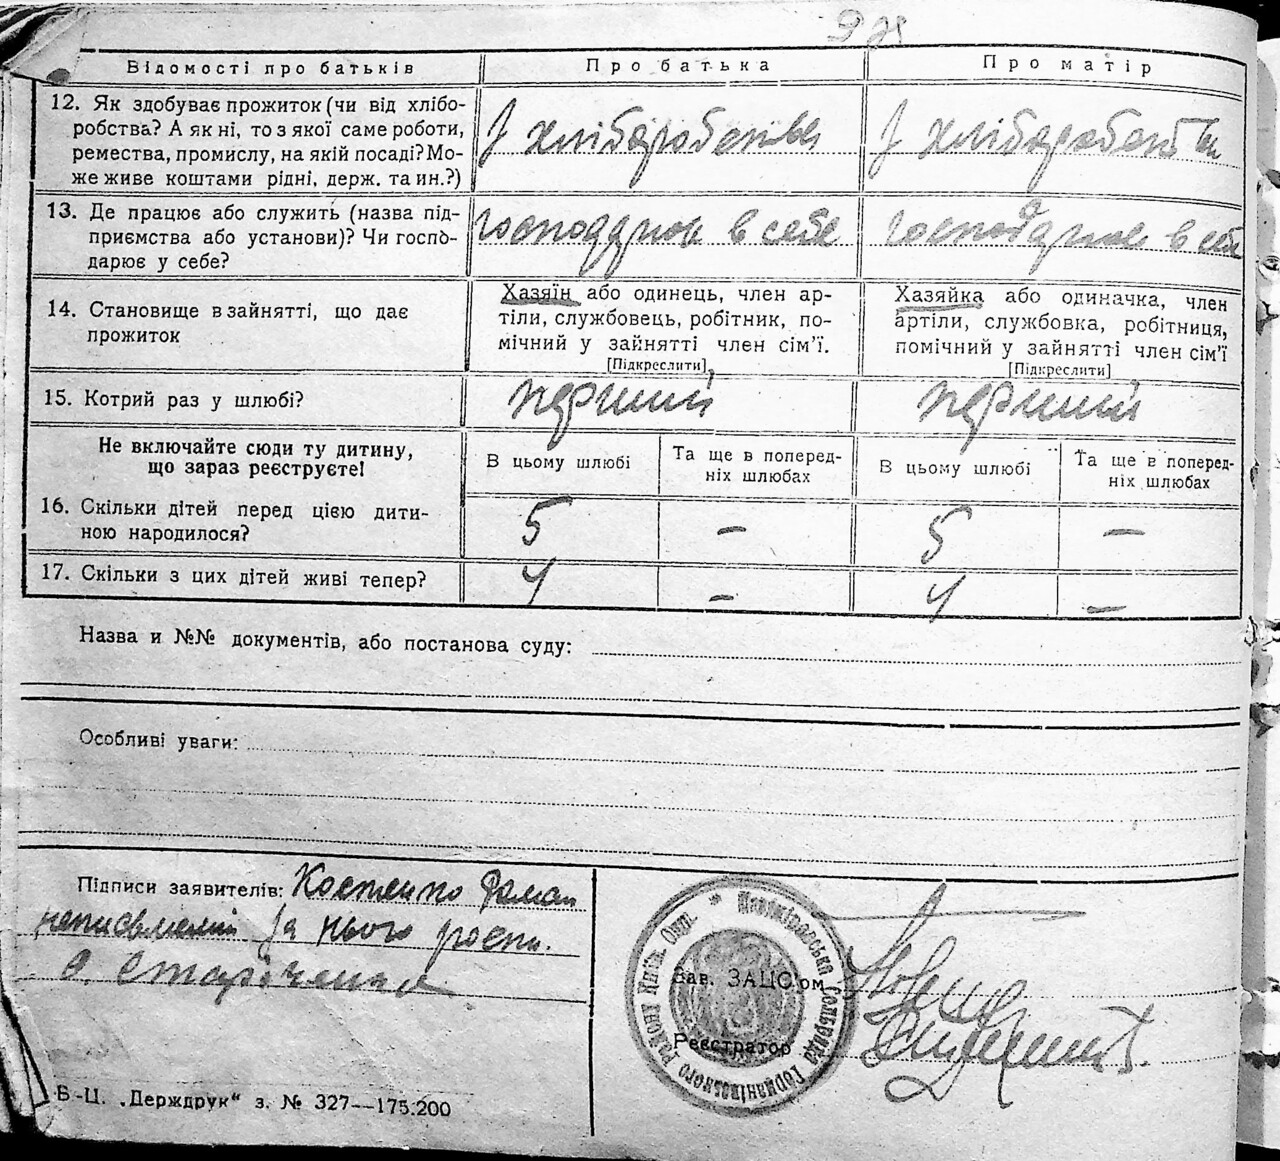 Відомості про батьків
Про батька
Про матір
12. Як здобуває прожиток (чи від хлібо-
робства? А як ні, то з якої саме роботи,
ремества, промислу, на якій посаді? Мо-
же живе коштами рідні, держ. та ин.?)
З хліборобства
З хліборобства
13. Де працює або служить (назва під-
приємства або установи)? Чи госпо-
дарює у себе?
господарює в себе
господарює в себе
14. Становище в зайнятті, що дає
прожиток
Хазяїн або одинець, член ар-
тіли, службовець, робітник, по-
мічний у зайнятті член сім'ї.
[Підкреслити]
Хазяйка або одиначка, член
артіли, службовка, робітниця,
помічний у зайнятті член сім'ї
[Підкреслити]
15. Котрий раз у шлюбі?
перший
перший
Не включайте сюди ту дитину,
що зараз реєструєте!
В цьому шлюбі
Та ще в поперед-
ніх шлюбах
В цьому шлюбі
Та ще в поперед-
ніх шлюбах
16. Скільки дітей перед цією дити-
ною народилося?
5
–
5
–
17. Скільки з цих дітей живі тепер?
4
–
4
–
Назва и №№ документів, або постанова суду:
Особливі уваги:
Підписи заявителів: Костенко Роман
неписьмений За нього роспи.
Зав. ЗАЦС'ом
Реєстратор
Б-Ц. „Держдрук“ з. № 327—175.200